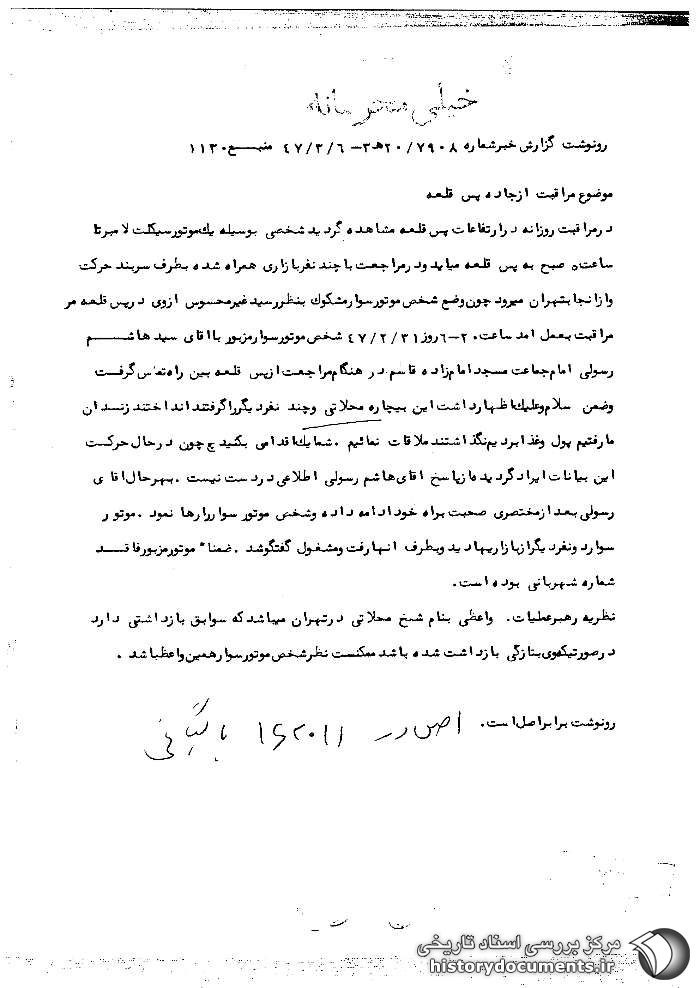 خیلی محرمانه
رونوشت گزارش خبر شماره ۲۰/۷۹۰۸ه‍۳ – ۴۷/۳/۶ منبع ۱۱۳۰
موضوع مراقبت ازجاده پس قلعه
درمراقبت روزانه درارتفاعات پس قلعه مشاهده گردید شخصی بوسیله یك موتورسیکلت لامبرتا
ساعت۵ صبح به پس قلعه میاید ودرمراجعت باچند نفربازاری همراه شده بطرف سربند حرکت
وازانجا بتهران میرود چون وضع شخص موتورسوارمشکوك بنظررسید غیرمحسوس ازوی درپس قلعه مر
مراقبت بعمل امد ساعت ۲۰–۶ روز ۴۷/۲/۳۱ شخص موتورسوارمزبور بااقای سید هاشم
رسولی امام جماعت مسجد امام زاده قاسم در هنگام مراجعت ازپس قلعه بین راه تماس گرفت
وضمن سلام وعلیك اظهارداشت این بیچاره محلاتی وچند نفردیگرراگرفتند انداختند زندان
مارفتیم پول وغذا بردیم نگذاشتند ملاقات نمائیم .شمایك اقدامی بکنید چون درحال حرکت
این بیانات ایراد گردیده ازپاسخ اقای هاشم رسولی اطلاعی دردست نیست .بهرحال اقای
رسولی بعد ازمختصری صحبت براه خود ادامه داده وشخص موتور سواررارها نمود .موتور
سوارد ونفردیگرازبازاریهادید وبطرف انها رفت ومشغول گفتگوشد .ضمنا" موتورمزبورفاقد
شماره شهربانی بوده است.
نظریه رهبرعملیات. واعظی بنام شیخ محلاتی درتهران میباشد که سوابق بازداشتی دارد
درصورتیکه وی بتازگی بازداشت شده باشد ممکنست نظرشخص موتورسوارهمین واعظ باشد .
رونوشت برابراصل است.
مرکز بررسی اسناد تاریخی
historydocuments.ir